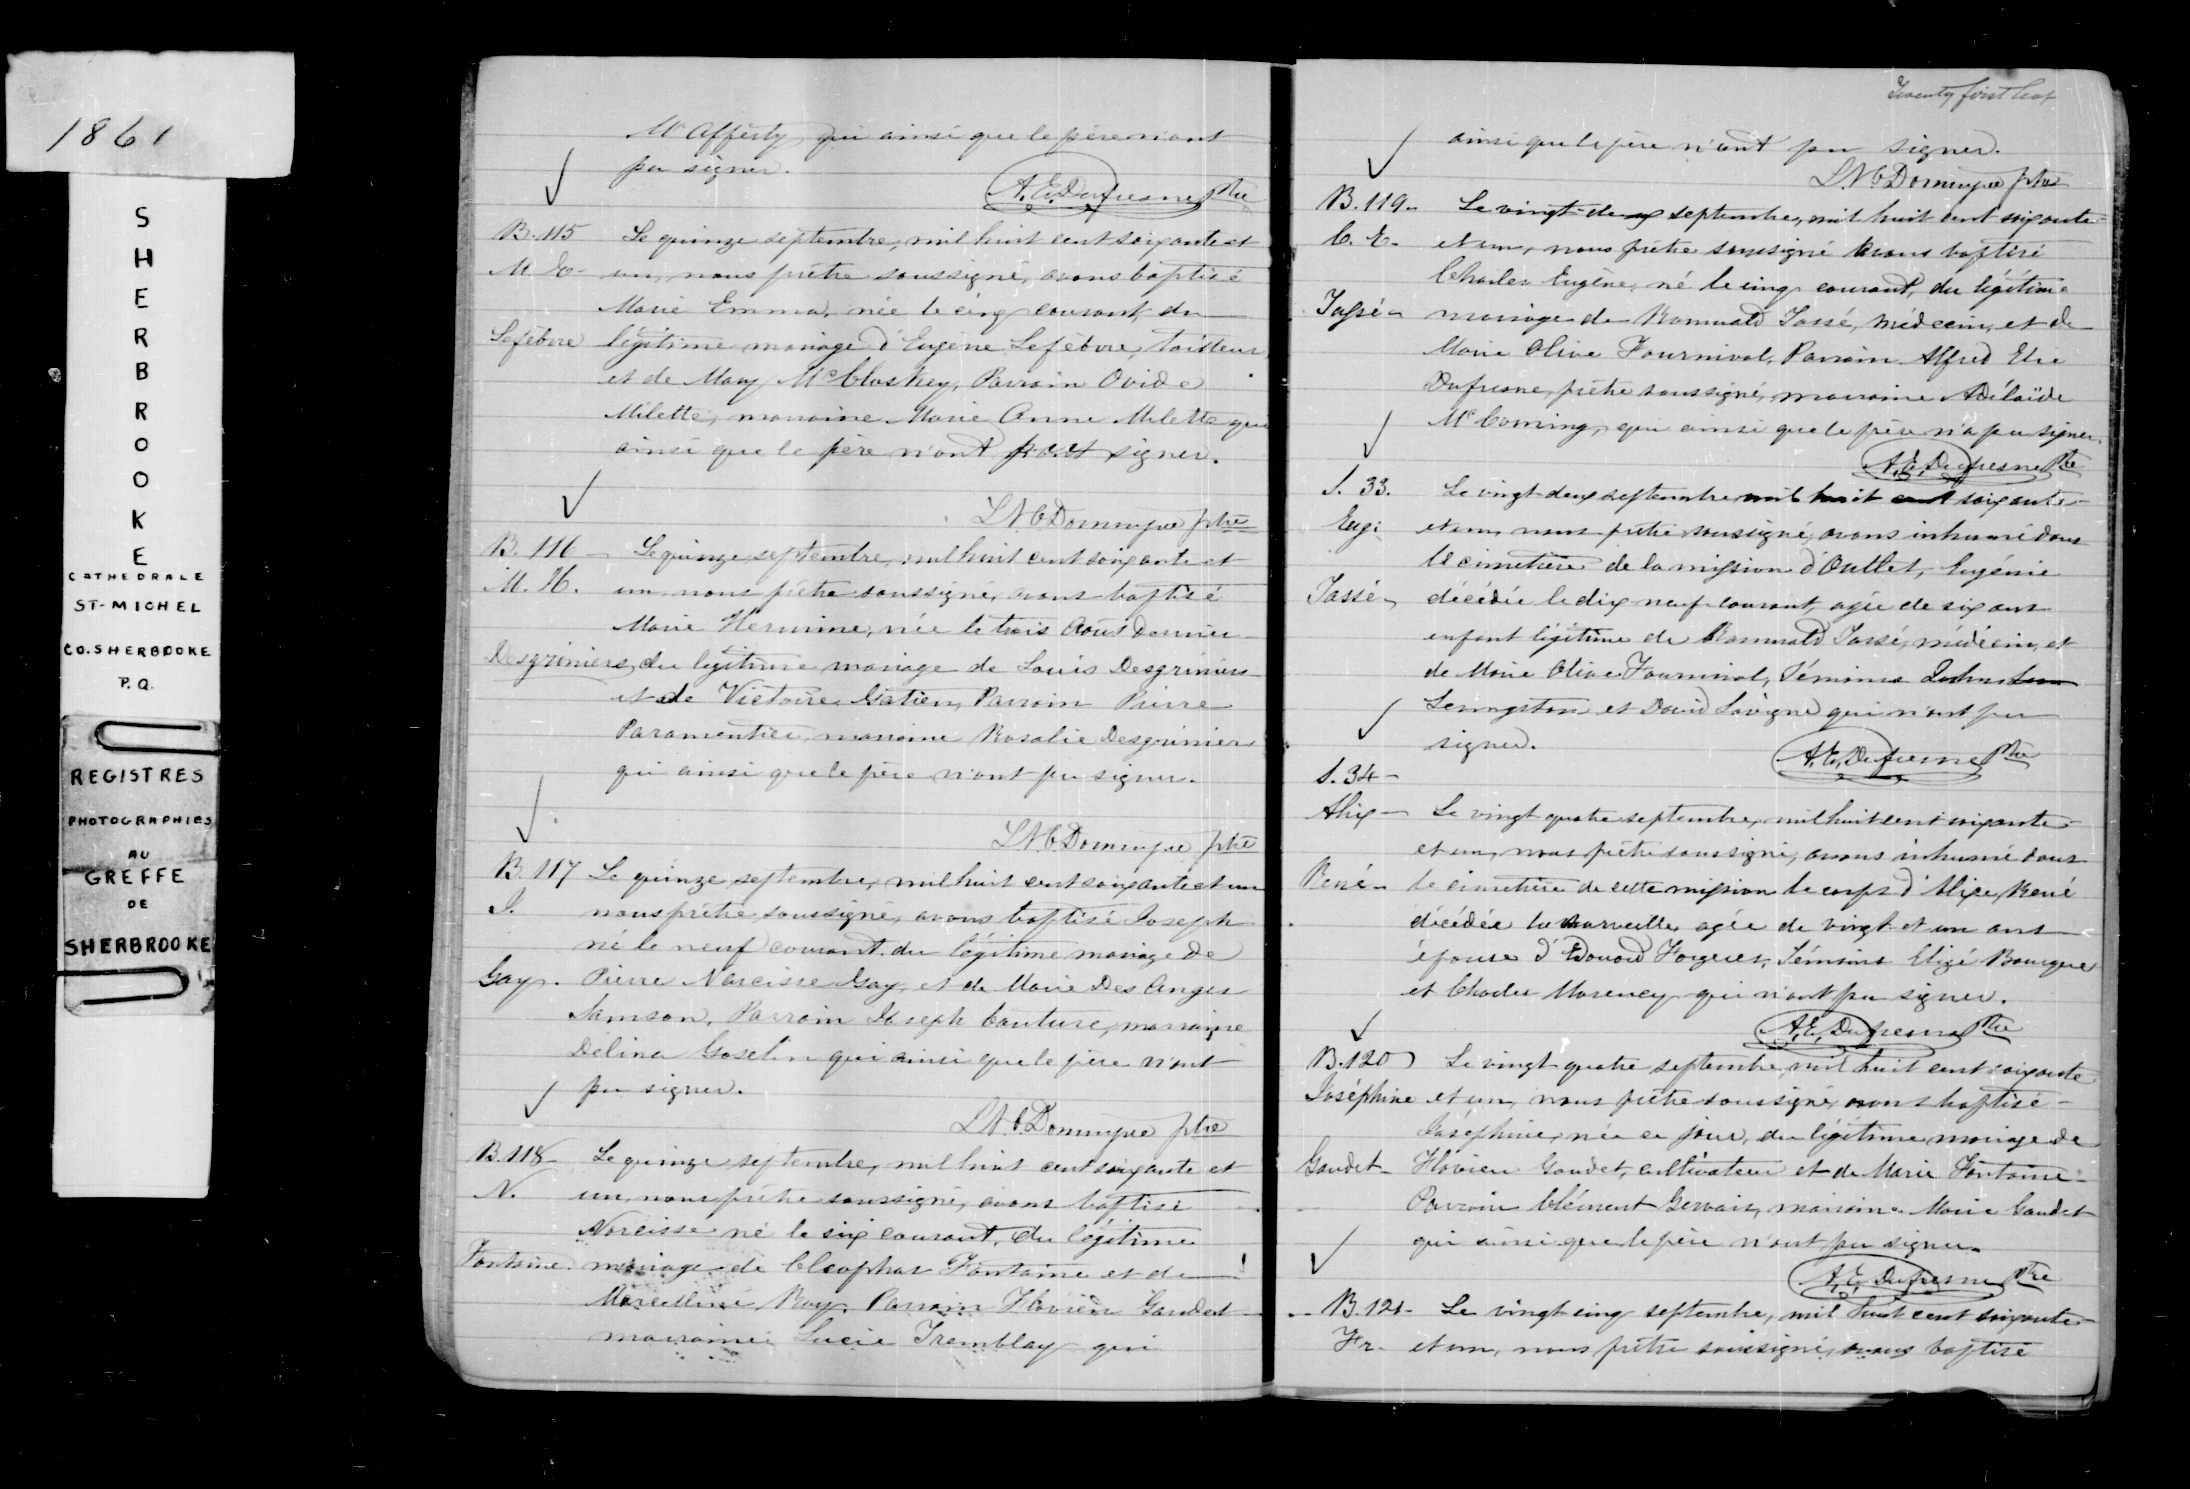 1861
SHERBROOKE
CATHEDRALE
ST-MICHEL
CO. SHERBROOKE
P.Q.
REGISTRES
PHOTOGRAPHIES
AU
GREFFE
DE
SHERBROOKE
Mc Afferty, qui ainsi que le père n'ont
pu signer.
A. E. Dufresne Ptre
B. 115 Le quinze septembre, mil huit cent soixante et
M. E. un, nous prêtre soussigné, avons baptisé
Marie Emma, née le cinq courant, du
Lefebvre légitime mariage d'Eugène Lefebvre, tailleur
et de Mary McCloskey, Parrain Ovide
Milette, marraine Marie Anne Milette qui
ainsi que le père n'ont pas signer.
L N C Domingue ptre
B. 116 Le quinze septembre, mil huit cent soixante et
M. H. un, nous prêtre soussigné, avons baptisé
Marie Hermine, née le trois Août dernier
Desgriniers du légitime mariage de Louis Desgriniers
et de Victoire Gatien, Parrain Pierre
Paramentier, marraine Rosalie Desgriniers
qui ainsi que le père n'ont pu signer.
L N C Domingue ptre
B. 117 Le quinze septembre, mil huit cent soixante et un
J. nous prêtre soussigné, avons baptisé Joseph
né le neuf courant du légitime mariage de
Gay. Pierre Narcisse Gay, et de Marie Des Anges
Samson, Parrain Joseph Couture, marraine
Delina Goselin qui ainsi que le père n'ont
pu signer.
L N C Domingue ptre
B. 118 Le quinze septembre, mil huit cent soixante et
N. un, nous prêtre soussigné, avons baptisé
Narcisse né le six courant, du légitime
Fontaine mariage de Cleophas Fontaine et de
Marcelline Roy, Parrain Flavien Gaudet
marraine Lucie Tremblay qui
Twenty first leaf
ainsi que le père n'ont pu signer.
L. N C Domingue ptre
B. 119 Le vingt-deux septembre, mil huit cent soixante
C. E. et un, nous prêtre soussigné avons baptisé
Charles Eugène, né le cinq courant, du légitime
Tassé mariage de Romuald Tassé, médecin, et de
Marie Olive Fournival, Parrain Alfred Elie
Dufresne, prêtre soussigné, marraine Adélaïde
Mc Coming, qui ainsi que le père n'a pu signer.
A. E. Dufresne Ptre
S. 33. Le vingt-deux septembre mil huit cent soixante
Eug: et un, nous prêtre soussigné, avons inhumé dans
le cimetière de la mission d'Outlet, Eugénie
Tassé décédée le dix neuf courant, agée de six ans
enfant légitime de Romuald Tassé, médecin, et
de Marie Olive Fournival, Témoins John
Levingston et David Lavigne qui n'ont pu
signer.
A. E. Dufresne Ptre
S. 34
Alix Le vingt quatre septembre, mil huit cent soixante
et un, nous prêtre soussigné, avons inhumé dans
René le cimetière de cette mission le corps d'Alixe René
décédée la surveille, agée de vingt et un ans
épouse d'Edouard Forgues, Témoins Elizé Bourque
et Charles Marency qui n'ont pu signer.
A. E. Dufresne Ptre
B. 120 Le vingt quatre septembre, mil huit cent soixante
Joséphine et un, nous prêtre soussigné, avons baptisé
Joséphine, née ce jour, du légitime mariage de
Gaudet Flavien Gaudet, cultivateur et de Marie Fontaine
Parrain Clément Gervais, marraine Marie Gaudet
qui ainsi que le père n'ont pu signer.
A. E. Dufresne Ptre
B. 121 Le vingt cinq septembre, mil huit cent soixante
Fr. et un, nous prêtre soussigné, avons baptisé